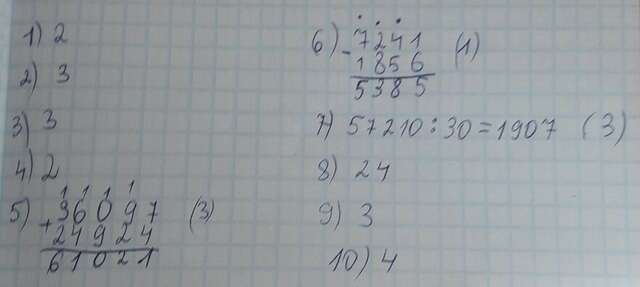 1) 2
2) 3
3) 3
4) 2
1 1 1 1
5) 36097 (3)
+ 24924
61021
6) 7241 (1)
- 1856
5385
7) 57210:30=1907 (3)
8) 24
9) 3
10) 4